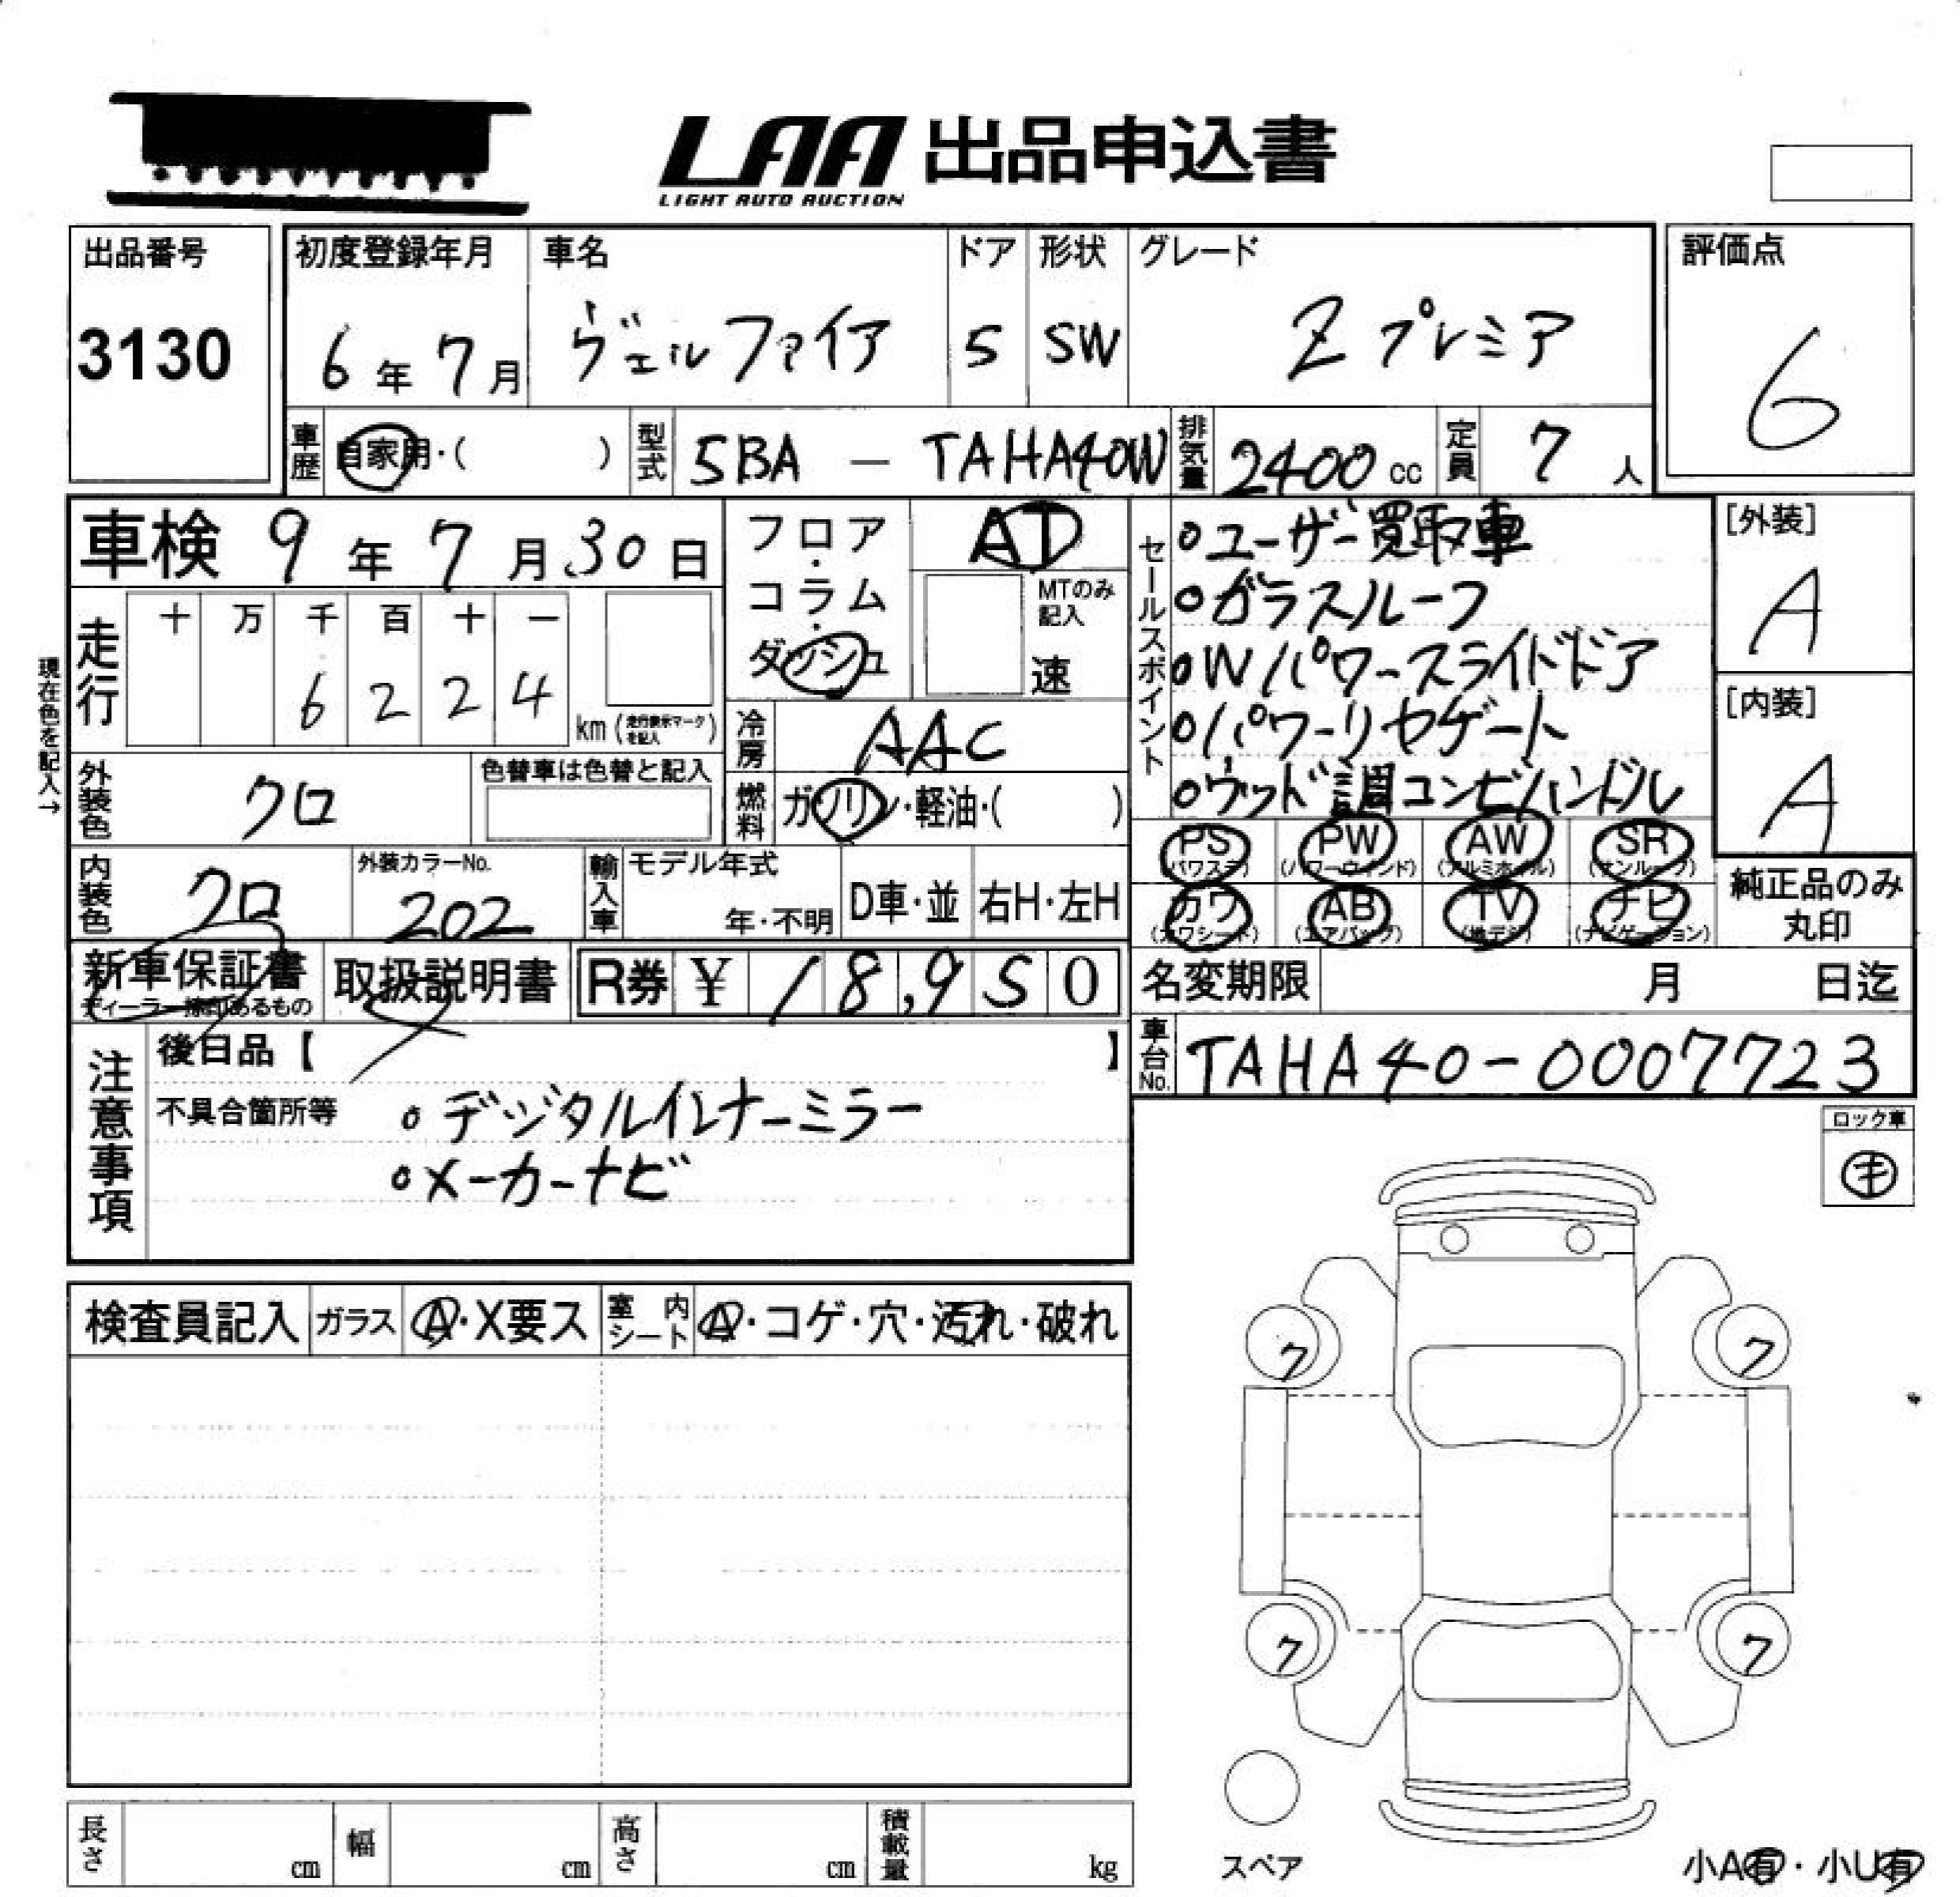 LAA 出品申込書
LIGHT AUTO AUCTION
出品番号
3130
初度登録年月
6年7月
車名
ヴェルファイア
ドア
5
形状
SW
グレード
Z プレミア
評価点
6
車歴
自家用・( )
型式
5BA — TAHA40W
排気量
2400 cc
定員
7 人
車検 9年7月30日
フロア・コラム・ダッシュ
AT
MTのみ記入
速
セールスポイント
○ユーザー買取車
○ガラスルーフ
○W/パワースライドドア
○パワーリヤゲート
○ウッド調コンビハンドル
[外装]
A
[内装]
A
現在色を記入→
走行
十 万 千 百 十 一
6 2 2 4
km (走行表示マークを記入)
冷房
AAC
燃料
ガソリン・軽油・( )
外装色
クロ
色替車は色替と記入
内装色
クロ
外装カラーNo.
202
輸入車
モデル年式
年・不明
D車・並
右H・左H
PS (パワステ)
PW (パワーウィンド)
AW (アルミホイル)
SR (サンルーフ)
カワ (カワシート)
AB (エアバッグ)
TV (地デジ)
ナビ (ナビゲーション)
純正品のみ
丸印
新車保証書
取扱説明書
R券 ¥ 18,950
名変期限 月 日迄
車台No.
TAHA40-0007723
注意事項
後日品【 】
不具合箇所等
○デジタルインナーミラー
○メーカーナビ
ロック車
キ
検査員記入
ガラス
A・X要ス
室内シート
A・コゲ・穴・汚れ・破れ
7
7
7
7
スペア
小A有・小U有
長さ cm
幅 cm
高さ cm
積載量 kg